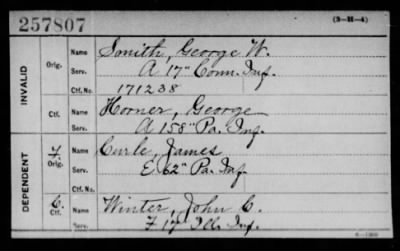 257807
(3-H-4)
INVALID
Orig.
Name Smith, George W.
Serv. A 17" Conn. Inf.
Ctf. No. 171238
Ctf.
Name Horner, George
Serv. A 158" Pa. Inf.
DEPENDENT
Orig.
Name Curle, James
Serv. E 62" Pa. Inf.
Ctf. No.
C.
Ctf.
Name Winter, John C.
Serv. F 17" Ill. Inf.